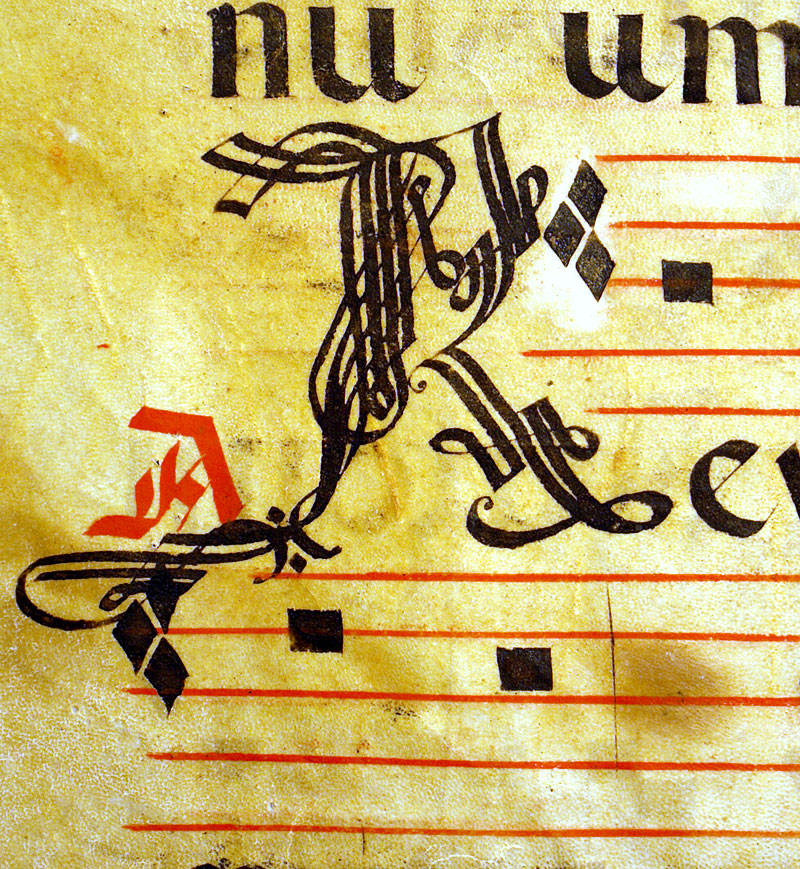 nu um
A
Rev